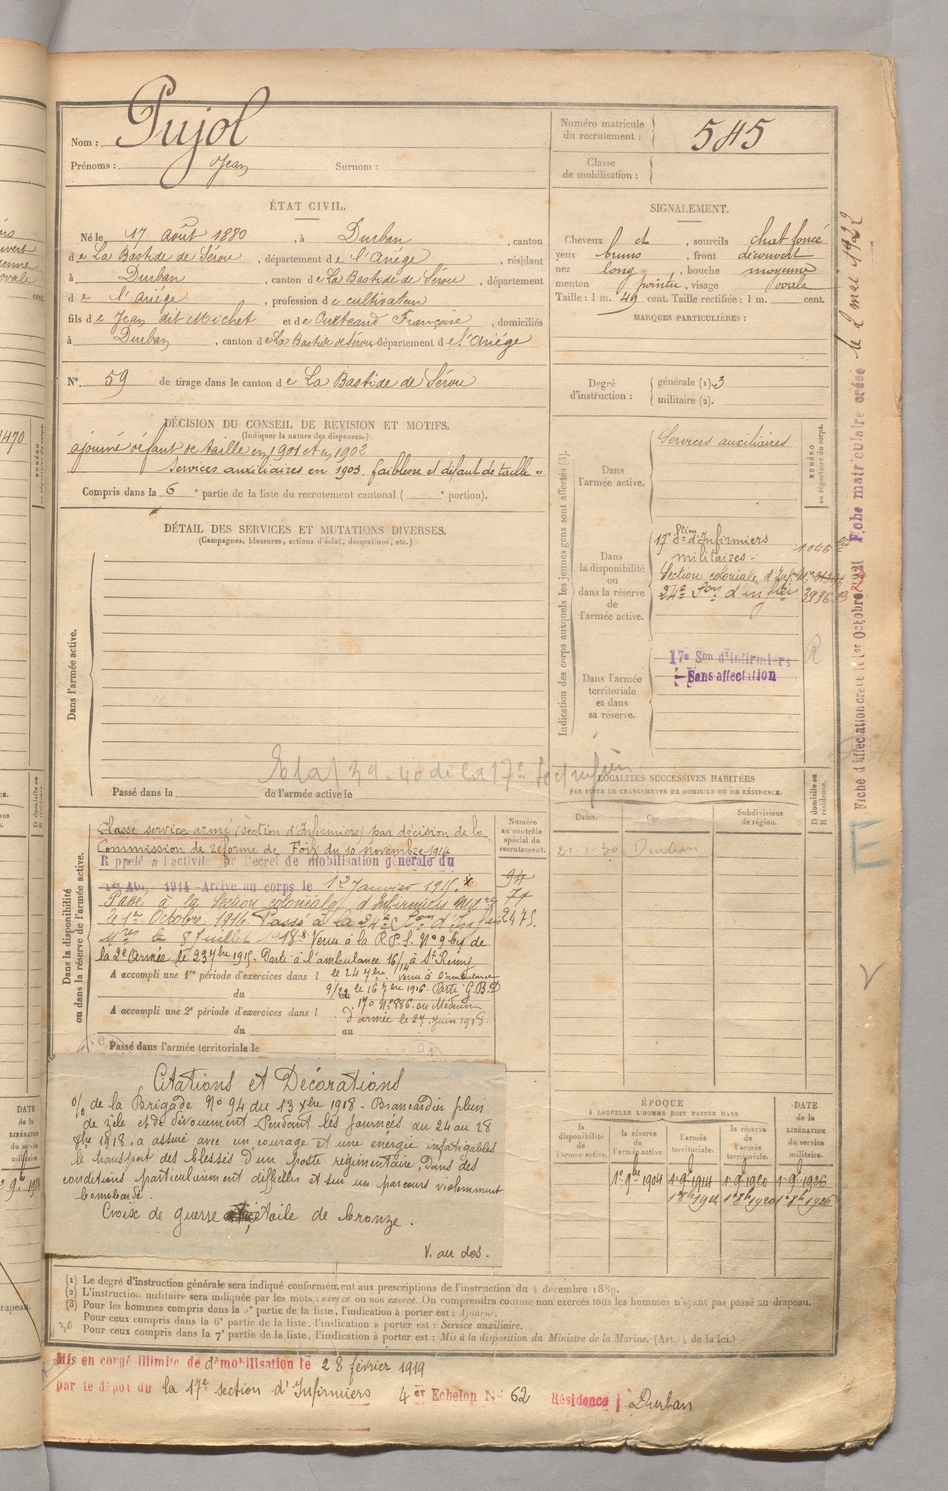 Nom : Pujol
Prénoms : Jean Surnom :
Numéro matricule du recrutement : 545
Classe de mobilisation :
ÉTAT CIVIL.
Né le 17 août 1880, à Durban, canton
de La Bastide de Sérou, département de l'Ariège, résidant
à Durban, canton de La Bastide de Sérou, département
de l'Ariège, profession de cultivateur
fils de Jean dit Michet et de Françoise, domiciliés
à Durban, canton de La Bastide de Sérou département de l'Ariège
N° 59 de tirage dans le canton de La Bastide de Sérou
SIGNALEMENT.
Cheveux et, sourcils chat foncé
yeux bruns, front découvert
nez long, bouche moyenne
menton pointu, visage ovale
Taille : 1 m. 49 cent. Taille rectifiée : 1 m. cent.
MARQUES PARTICULIÈRES :
Degré d'instruction : générale (1). 3
militaire (2).
DÉCISION DU CONSEIL DE REVISION ET MOTIFS.
(Indiquer la nature des dispenses.)
ajourné défaut de taille en 1901 et en 1902
Services auxiliaires en 1903. faiblesse et défaut de taille "
Compris dans la 6e partie de la liste du recrutement cantonal ( e portion).
DÉTAIL DES SERVICES ET MUTATIONS DIVERSES.
(Campagnes, blessures, actions d'éclat, décorations, etc.)
Dans l'armée active.
Passé dans la de l'armée active le
Indication des corps auxquels les jeunes gens sont affectés (3).
NUMÉRO au répertoire du corps.
Dans l'armée active.
Services auxiliaires
Dans la disponibilité ou dans la réserve de l'armée active.
17e Stion d'Infirmiers
militaires -
Section coloniale d'Inf
24e Son d'inf
Dans l'armée territoriale et dans sa réserve.
17e Son d'Infirmiers
Sans affectation
Fiche d'affectation créée le 1er Octobre 1921 Fiche matriculaire créée le 2 mai 1922
LOCALITÉS SUCCESSIVES HABITÉES
PAR SUITE DE CHANGEMENTS DE DOMICILE OU DE RÉSIDENCE.
Dates.
Subdivisions de région.
D domicile ou R résidence.
21-1-30 Durban
Dans la disponibilité ou dans la réserve de l'armée active.
Numéro au contrôle spécial du recrutement.
Classé service armé (section d'Infirmiers) par décision de la
Commission de réforme de Foix du 10 novembre 1914
Rappelé à l'activité par Décret de mobilisation générale du
1er Août 1914 - Arrivé au corps le 12 Janvier 1915.
Passé à la Section coloniale d'Infirmiers Milres
le 1er Octobre 1916. Passé à la 24e Son d'Infirs
Mres le 8 Juillet 1918 x Venu à la R.P.S. N° 9 bis de
la 2e Armée le 23 7bre 1915. Parti à l'ambulance 16/14 à St Remy
A accompli une 1re période d'exercices dans l le 24 7bre. venu à l'ambulance
du 9/20 le 16 7bre 1916. Parti G.B.D
A accompli une 2e période d'exercices dans l 170 N° 886. ou Médecin
d'armée le 27 Juin 1918.
du au
Passé dans l'armée territoriale le
94
71
2475.
Citations et Décorations
o/ de la Brigade N° 94 du 13 xbre 1918 - Brancardier plein
de zèle et de dévouement. Pendant les journées du 24 au 28
8bre 1918. a assuré avec un courage et une énergie infatigables
le transport des blessés d'un poste régimentaire, Dans des
conditions particulièrement difficiles et sur un parcours violemment
bombardé.
Croix de guerre étoile de bronze.
V. au dos.
ÉPOQUE
À LAQUELLE L'HOMME DOIT PASSER DANS
la disponibilité de l'armée active.
la réserve de l'armée active.
l'armée territoriale.
la réserve de l'armée territoriale.
DATE de la LIBÉRATION du service militaire.
1er 9bre 1904 1-9-1914 1-9-1920 1-9-1926
1er 8bre 1914 1er 8bre 1920 1er 8bre 1926
(1) Le degré d'instruction générale sera indiqué conformément aux prescriptions de l'instruction du 4 décembre 1889.
(2) L'instruction militaire sera indiquée par les mots : exercé ou non exercé. On comprendra comme non exercés tous les hommes n'ayant pas passé au drapeau.
(3) Pour les hommes compris dans la 5e partie de la liste, l'indication à porter est : Ajourné.
Pour ceux compris dans la 6e partie de la liste, l'indication à porter est : Service auxiliaire.
Pour ceux compris dans la 7e partie de la liste, l'indication à porter est : Mis à la disposition du Ministre de la Marine. (Art. 4 de la loi.)
Mis en congé illimité de démobilisation le 28 février 1919
par le dépôt du la 17e section d'Infirmiers 4er Echelon N° 62 Résidence à Durban